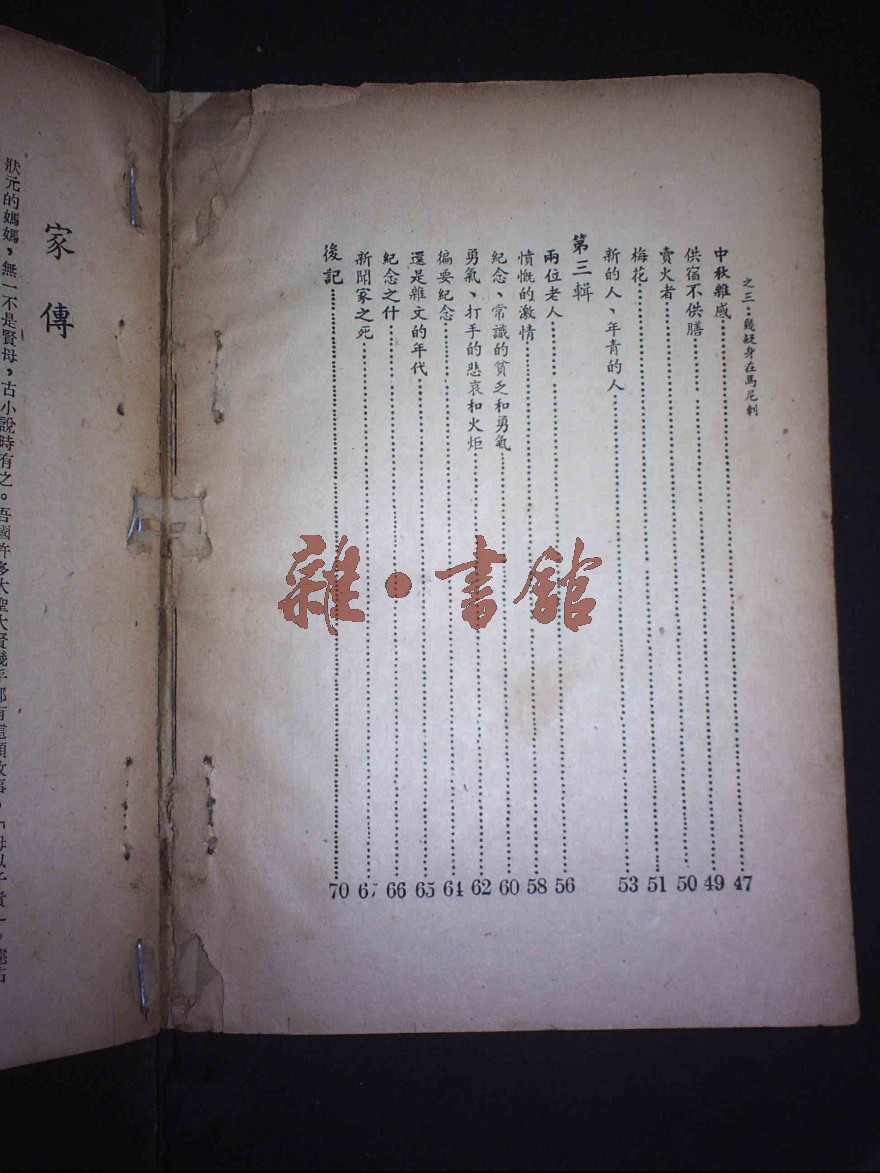 之三：幾疑身在馬尼剌
中秋雜感……47
供宿不供膳……49
賣火者……50
梅花……51
新的人、年青的人……53
第三輯
兩位老人……56
憤慨的激情……58
紀念、常識的貧乏和勇氣……60
勇氣、打手的悲哀和火炬……62
偏要紀念……64
還是雜文的年代……65
紀念之什……66
新聞家之死……67
後記……70
家傳
狀元的媽媽，無一不是賢母，古小說時有之。吾國許多大聖大賢幾乎都有這類故事，「母以子貴」，
雜·書館